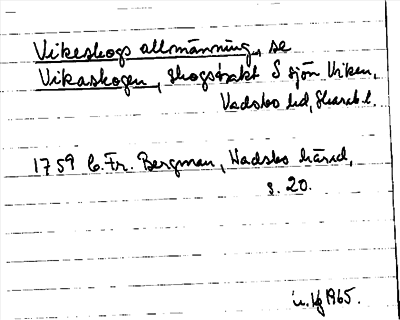 Vikeskogs allmänning, se
Vikaskogen, skogstrakt S sjön Viken,
Vadsbo hd, Skarab. l.
1759 C. Fr. Bergman, Wadsbo härad,
s. 20.
1965.